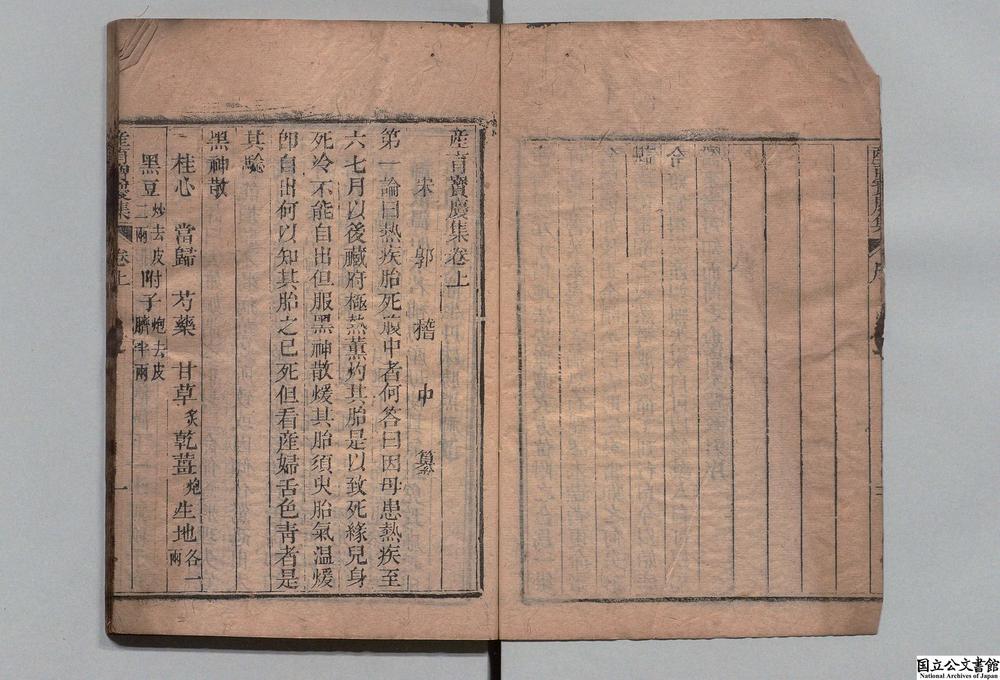 産育寶慶集卷上
宋 郭 稽 中 纂
第一論曰熱疾胎死腹中者何答曰因母患熱疾至
六七月以後藏府極熱薰灼其胎是以致死緣兒身
死冷不能自出但服黑神散煖其胎須臾胎氣温煖
卽自出何以知其胎之已死但看産婦舌色靑者是
其驗
黑神散
桂心 當歸 芍藥 甘草炙 乾薑炮 生地各一兩
黑豆炒去皮二兩 附子炮去皮臍半兩
産育寶慶集 卷上 一
国立公文書館
National Archives of Japan